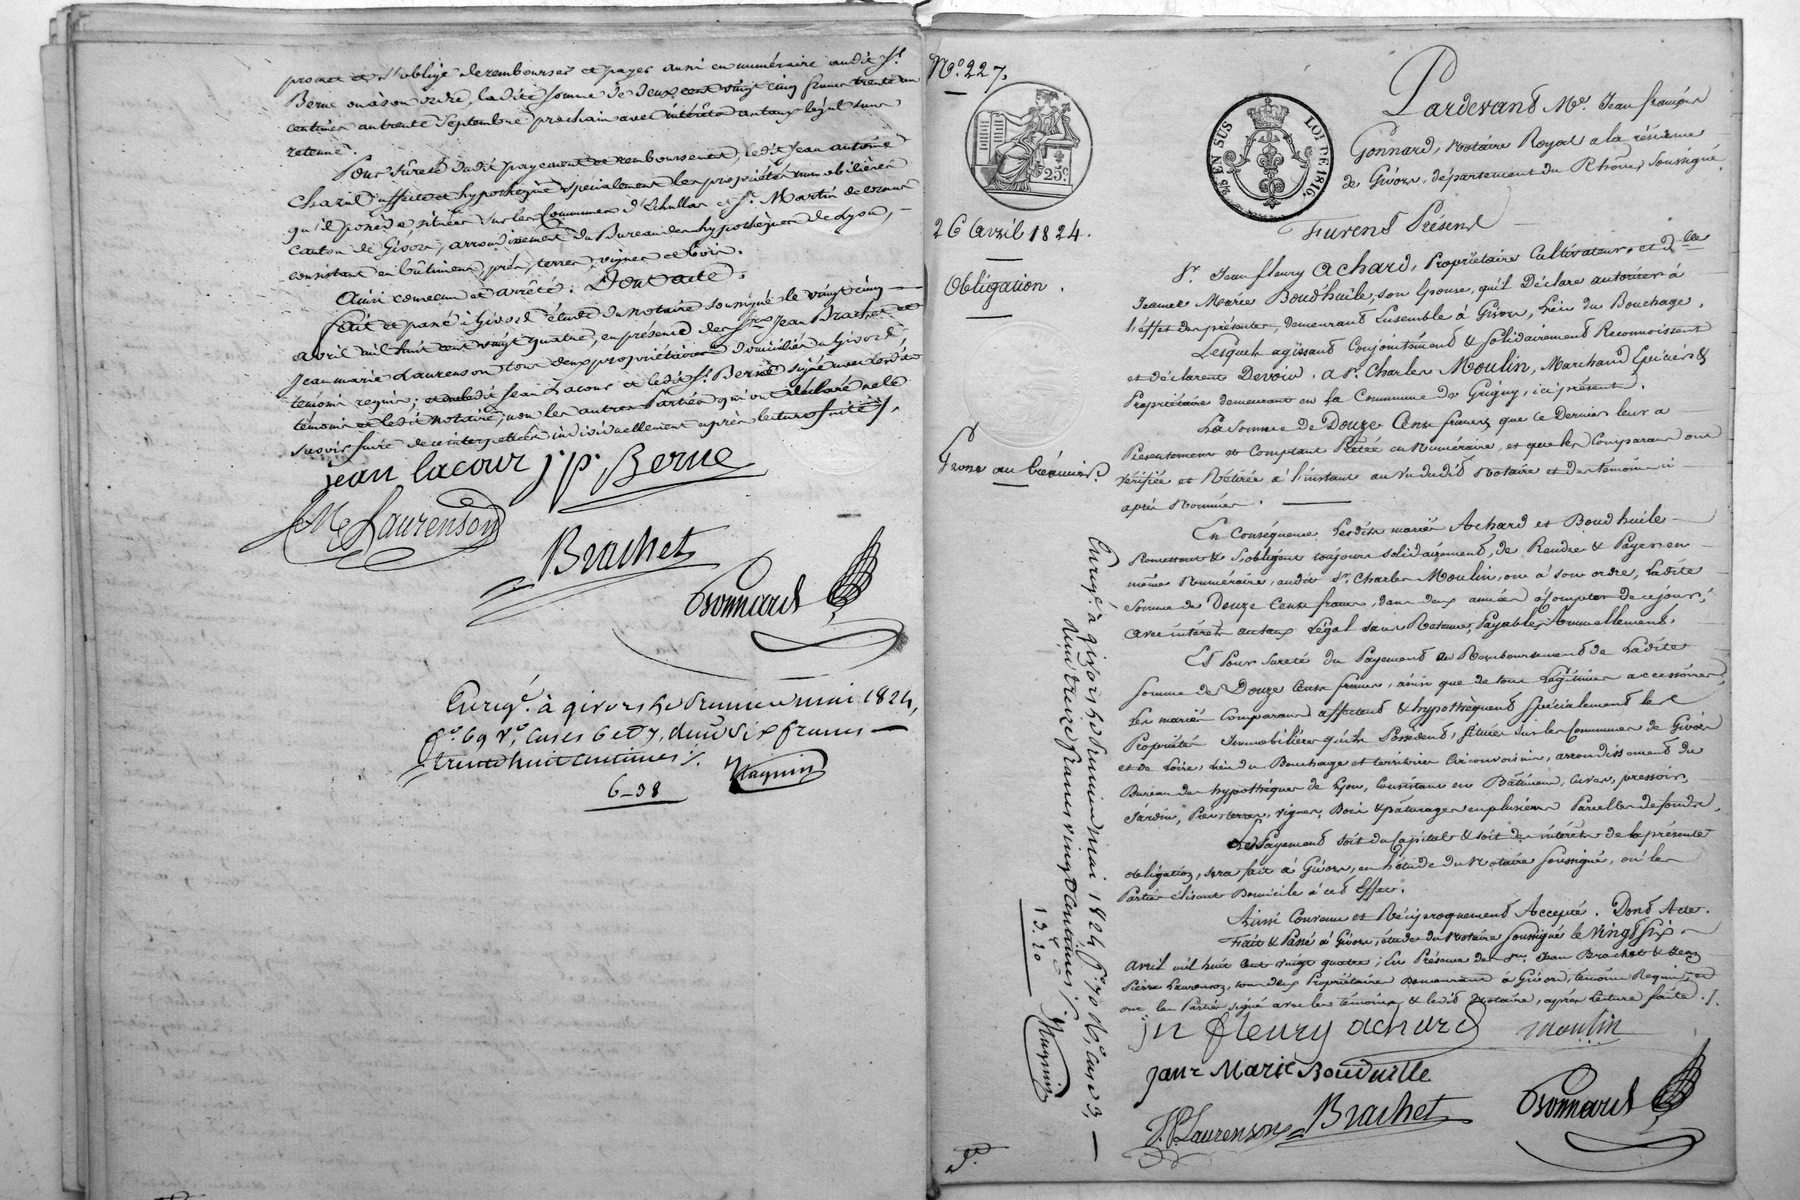 promet et s'oblige de rembourser et payer aussi en numéraire audit Sr.
Berne ou à son ordre, ladite somme de deux cent vingt cinq francs trente un
centimes au trente Septembre prochain avec intérêts au taux légal sans
retenue.
Pour sûreté dudit payement et remboursement, ledit Jean antoine
affecte et hypothèque spécialement les propriétés immobilières
qu'il possède, situées sur les Communes d'Echallas et St. Martin de
canton de Givors, arrondissement du Bureau des hypothèques de Lyon,
consistant en bâtimens, prés, terres, vignes et bois.
Ainsi convenu et arrêté. Dont acte.
Fait et passé à Givors, étude du notaire soussigné le vingt cinq
avril mil huit cent vingt quatre, en présence des Srs. Jean Brachet et
Jean marie Laurenson tous deux propriétaires domiciliés à Givors,
témoins requis; et ledit Jean Lacour et ledit Sr. Berne signé avec lesdits
témoins et ledit notaire, non les autres Parties qui ont déclaré ne le
savoir faire de ce interpellés individuellement après lecture faite ./.
jean lacour j. p. Berne
JM Laurenson
Brachet
Gonnard
Enregé. à givors le Premier mai 1824,
fo. 69 Vo. cases 6 et 7, reçu six francs
trente huit centimes ./.
6-38
No. 227.
25c.
EN SUS
LOI DE 1816.
26 Avril 1824.
Obligation.
Grosse au Créancier.
Enregé. à givors le Premier mai 1824 fo. 70 Ro. case 3,
reçu treize francs vingt centimes ./.
13.20
Pardevant Me. Jean françois
Gonnard, Notaire Royal à la résidence
de Givors, département du Rhône, soussigné.
Furent Présens
Sr. Jean fleury Achard, Propriétaire Cultivateur, et Dlle
Jeanne Marie Boud'huile, son Epouse, qu'il Déclare autoriser à
l'effet des présentes, demeurant Ensemble à Givors, lieu du Bouchage.
Lesquels agissant Conjointement & solidairement Reconnoissent
et déclarent Devoir à Sr. Charles Moulin, Marchand Epicier &
Propriétaire demeurant en la Commune de Grigny, ici présent.
La Somme de Douze Cents francs que ce Dernier leur a
Présentement & Comptant Prêtée en Numéraire, et que les Comparans ont
vérifiée et Retirée à l'instant au vu dudit Notaire et des témoins ci
après Nommés.
En Conséquence lesdits mariés Achard et Boudhuile
Promettent & s'obligent toujours solidairement, de Rendre & Payer en
même Numéraire, audit Sr. Charles Moulin, ou à son ordre, Ladite
Somme de Douze Cents francs, dans deux années à Compter de ce jour,
avec intérêts au taux Légal sans Retenue, Payables Annuellement.
Et Pour sureté du Payement & Remboursement de Ladite
Somme de Douze Cents francs, ainsi que de tous Légitimes accessoires,
les mariés Comparans affectent & hypothèquent spécialement les
Propriétés Immobilières qu'ils Possèdent, situées sur les Communes de Givors
et de Loire, lieu du Bouchage et territoires Circonvoisins, arrondissement du
Bureau des hypothèques de Lyon, Consistant en Bâtimens, Cuves, pressoir,
Jardin, Prés, terres, vignes, Bois & pâturages en plusieurs Parcelles de fonds.
Le Payement soit du Capital & soit des intérêts de la présente
obligation, sera fait à Givors, en l'étude du Notaire soussigné, où les
Parties élisent Domicile à cet Effet.
Ainsi Convenu et Réciproquement Accepté. Dont Acte.
Fait & Passé à Givors, étude du Notaire soussigné le vingt six
avril mil huit cent vingt quatre; En Présence des Srs. Jean Brachet & Jean
Pierre Laurenson, tous deux Propriétaires Demeurant à Givors, témoins Requis, et
ont les Parties signé avec les témoins & ledit Notaire, après Lecture faite ./.
jn fleury achard moulin
janne Marie Bouduille
J. P. Laurenson Brachet Gonnard